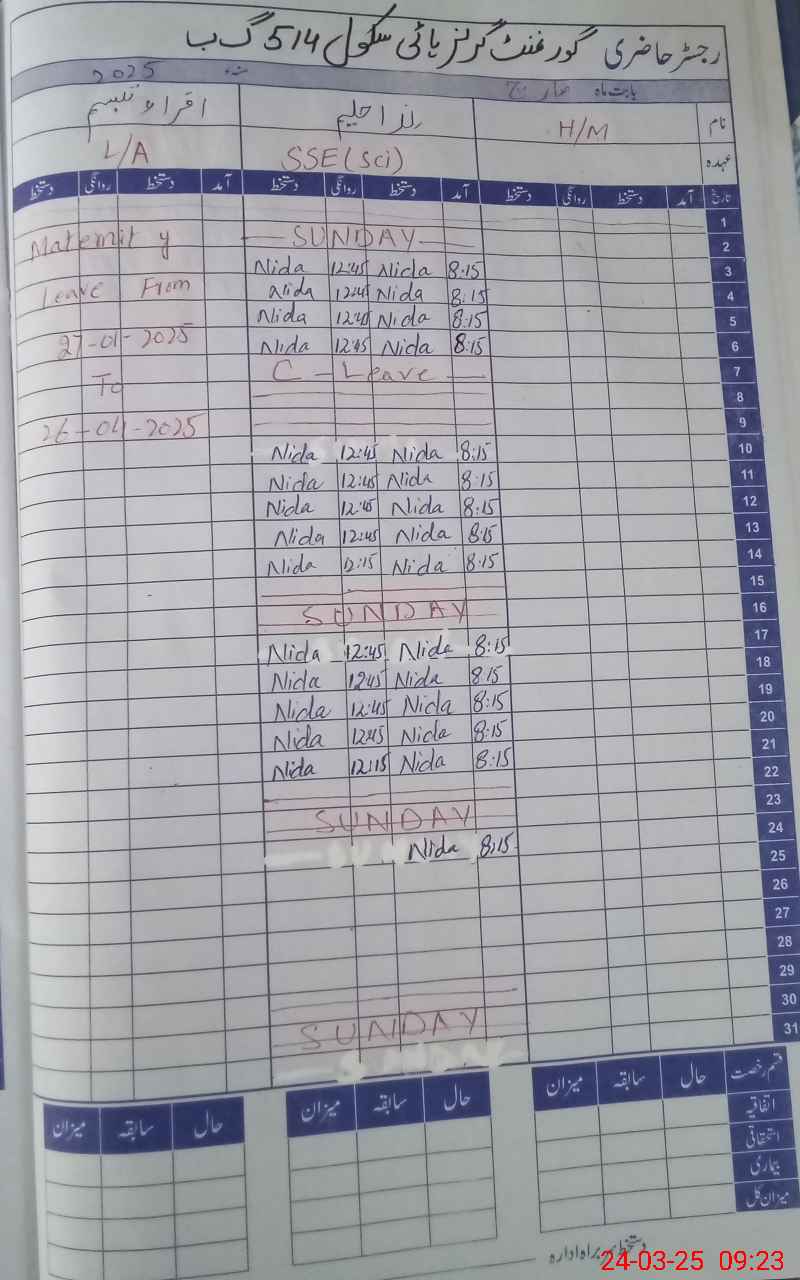 رجسٹر حاضری گورنمنٹ گرلز ہائی سکول 514 گ ب
بابت ماہ مارچ سنہ 2025
نام H/M
عہدہ SSE(Sci) L/A
تاریخ آمد دستخط روانگی دستخط آمد دستخط روانگی دستخط آمد دستخط روانگی دستخط
1
Maternity — SUNDAY — 2
Nida 12:45 Nida 8:15 3
Leave From Nida 12:45 Nida 8:15 4
Nida 12:45 Nida 8:15 5
27-01-2025 Nida 12:45 Nida 8:15 6
To C - Leave — 7
8
26-04-2025 9
Nida 12:45 Nida 8:15 10
Nida 12:45 Nida 8:15 11
Nida 12:45 Nida 8:15 12
Nida 12:45 Nida 8:15 13
Nida 12:15 Nida 8:15 14
15
SUNDAY 16
Nida 12:45 Nida 8:15 17
Nida 12:45 Nida 8:15 18
Nida 12:45 Nida 8:15 19
Nida 12:45 Nida 8:15 20
Nida 12:15 Nida 8:15 21
22
SUNDAY 23
Nida 8:15 24
25
26
27
28
29
SUNDAY 30
31
قسم رخصت حال سابقہ میزان حال سابقہ میزان حال سابقہ میزان
اتفاقیہ
استحقاقی
بیماری
میزان کل
دستخط سربراہ ادارہ
24-03-25 09:23